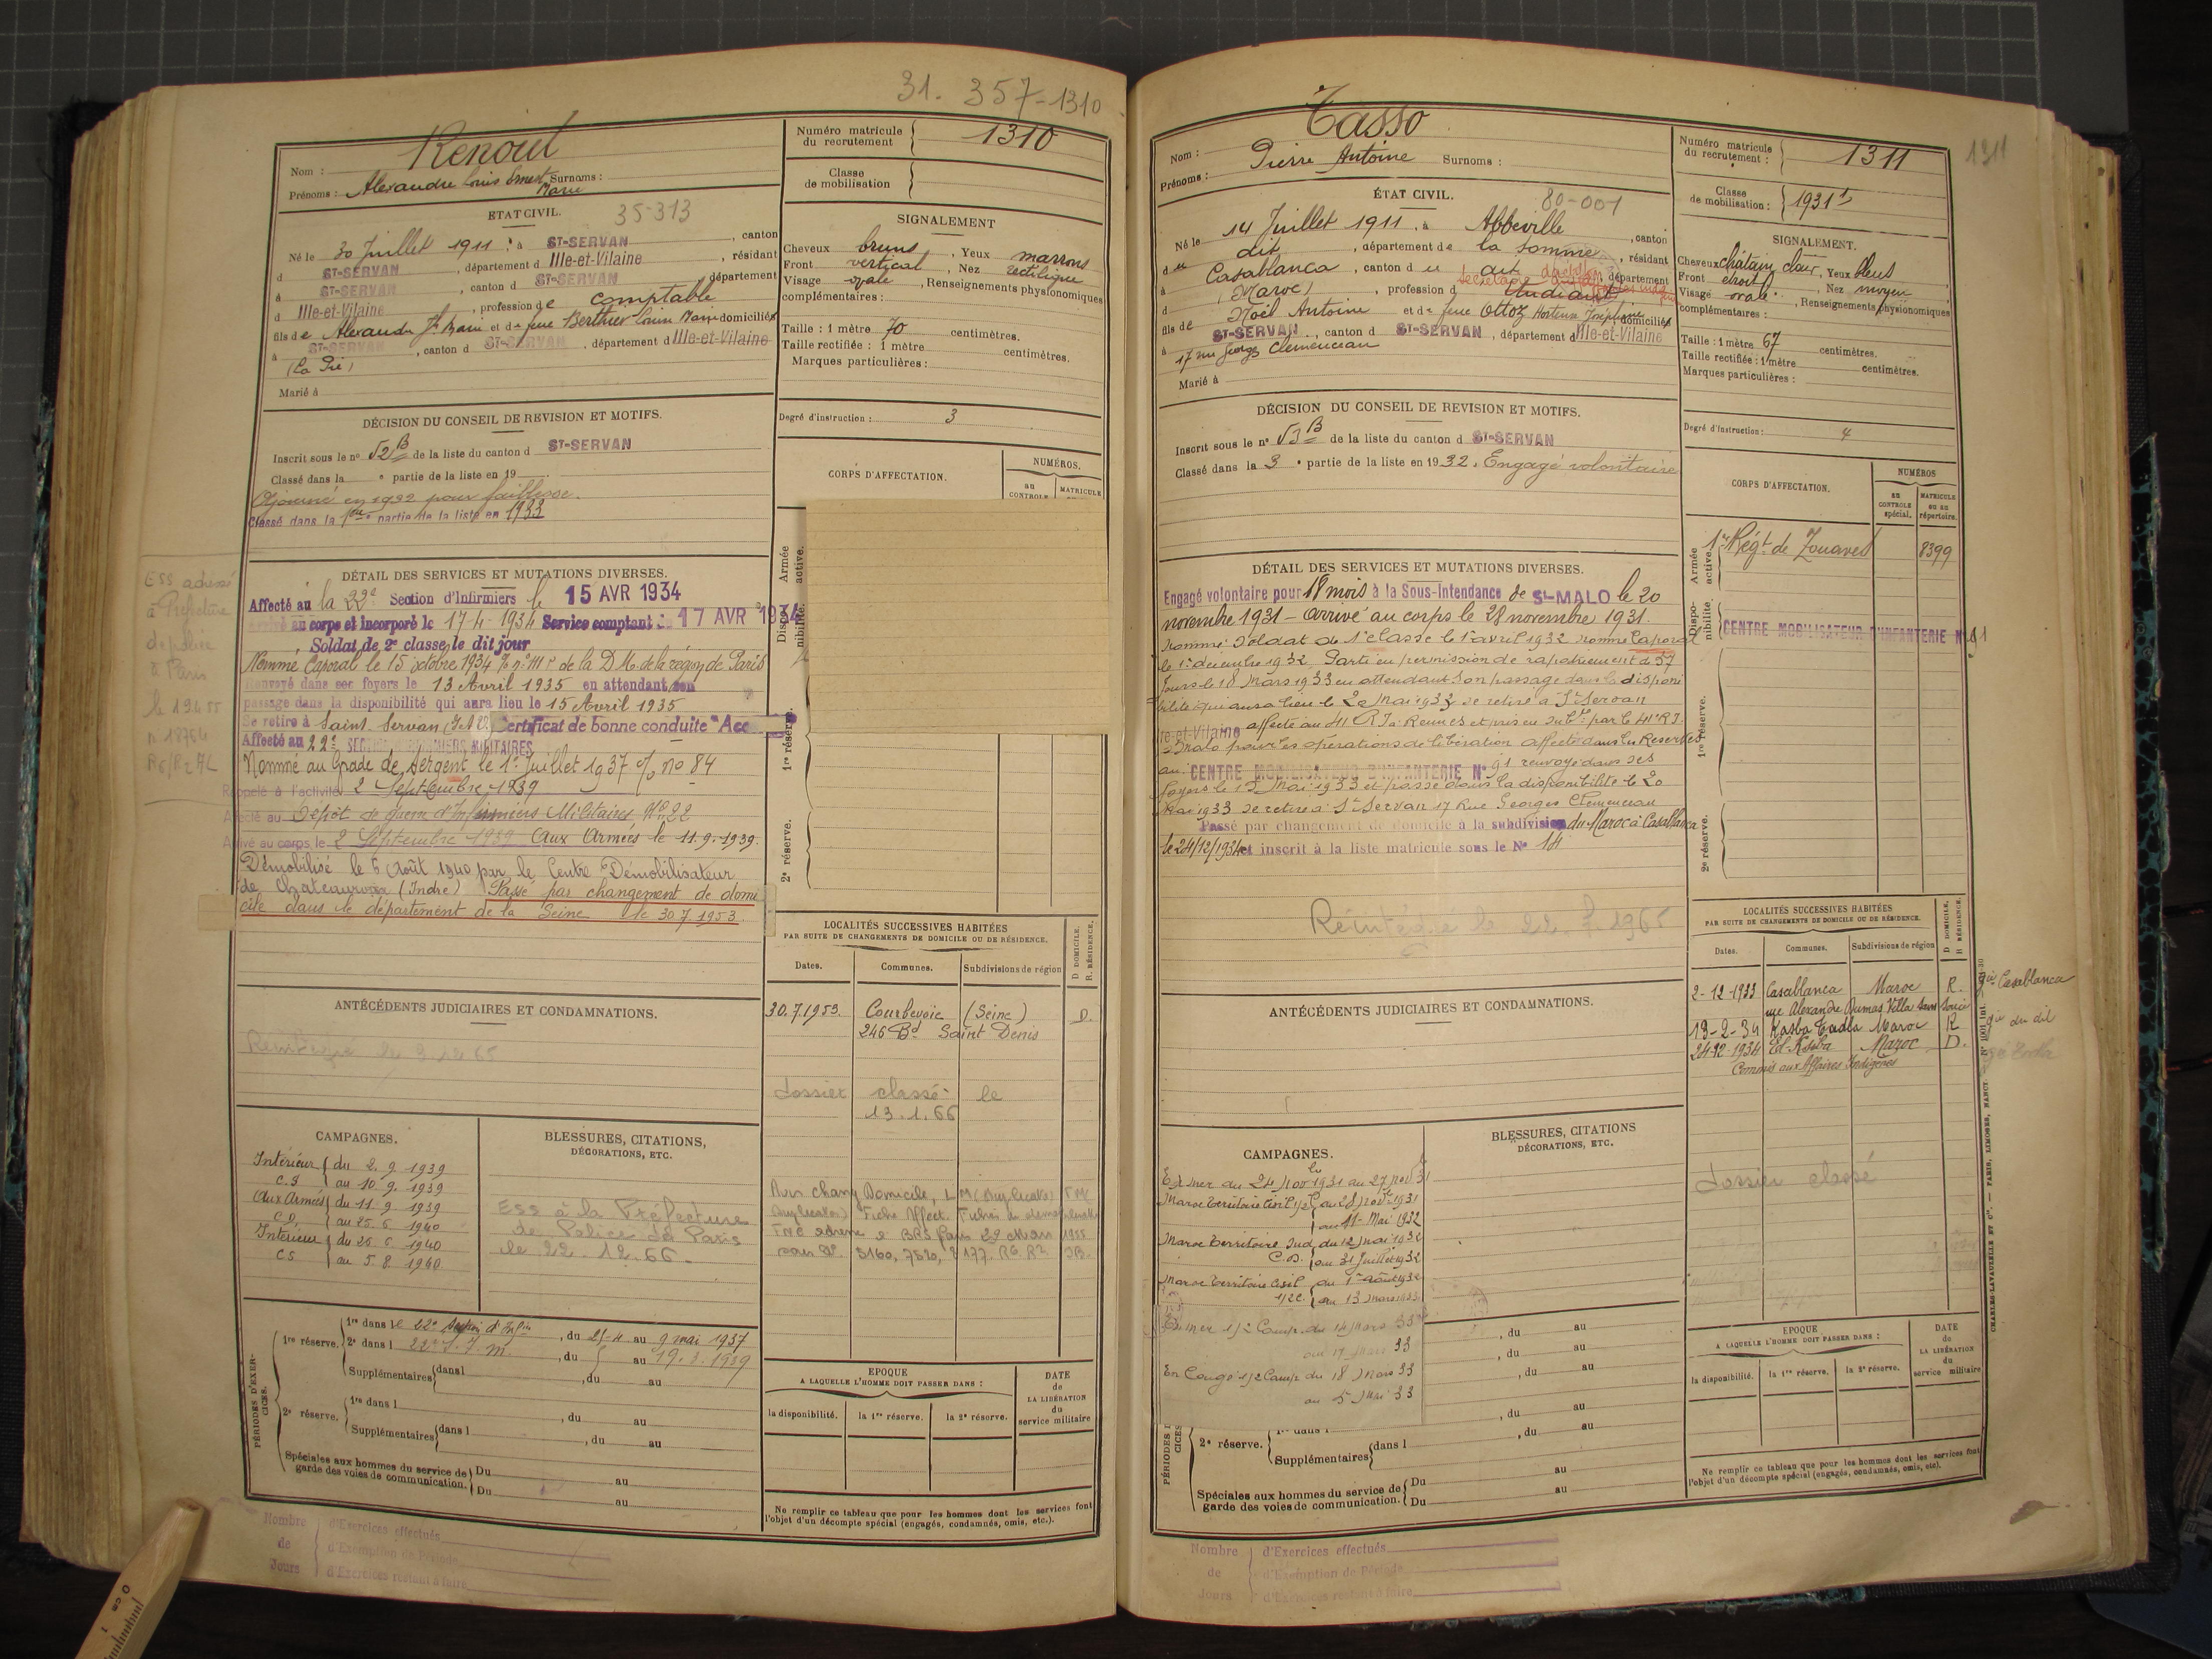 31. 357-1310
Nom : Renoul
Prénoms : Alexandre Louis Ernest Marie Surnoms :
Numéro matricule du recrutement 1310
Classe de mobilisation
ETAT CIVIL. 35-313
Né le 30 Juillet 1911, à ST-SERVAN, canton
d ST-SERVAN, département d Ille-et-Vilaine, résidant
à ST-SERVAN, canton d ST-SERVAN, département
d Ille-et-Vilaine, profession de comptable
fils de Alexandre Jh Marie et de feue Berthier Louise Marie domiciliés
à ST-SERVAN, canton d ST-SERVAN, département d Ille-et-Vilaine
(La Pie)
Marié à
SIGNALEMENT
Cheveux bruns, Yeux marrons
Front vertical, Nez rectiligne
Visage ovale, Renseignements physionomiques
complémentaires :
Taille : 1 mètre 70 centimètres.
Taille rectifiée : 1 mètre centimètres.
Marques particulières :
Degré d'instruction : 3
DÉCISION DU CONSEIL DE REVISION ET MOTIFS.
Inscrit sous le no 52 B de la liste du canton d ST-SERVAN
Classé dans la e partie de la liste en 19
Ajourné en 1932 pour faiblesse.
Classé dans la 1ère partie de la liste en 1933
CORPS D'AFFECTATION.
NUMÉROS.
au CONTROLE
MATRICULE
Armée active.
Disponibilité.
1re réserve.
2e réserve.
ESS adressé
à Préfecture
de police
à Paris
le 19.4.55
DÉTAIL DES SERVICES ET MUTATIONS DIVERSES.
Affecté au la 22e Section d'Infirmiers le 15 AVR 1934
Arrivé au corps et incorporé le 17-4-1934 Service comptant du 17 AVR 1934
Soldat de 2e classe, le dit jour
Nommé Caporal le 15 octobre 1934 % n° 111 de la D.M. de la région de Paris
Renvoyé dans ses foyers le 13 Avril 1935 en attendant son
passage dans la disponibilité qui aura lieu le 15 Avril 1935
Se retire à Saint-Servan (I et V) Certificat de bonne conduite "Acc
Affecté au 22e SECTION D'INFIRMIERS MILITAIRES
Nommé au Grade de Sergent le 1er Juillet 1937 % no 84
Rappelé à l'activité 2 Septembre 1939
Affecté au Dépôt de guerre d'Infirmiers Militaires N° 22
Arrivé au corps le 2 Septembre 1939 Aux Armées le 11.9.1939.
Démobilisé le 6 Août 1940 par le Centre Démobilisateur
de Chateauroux (Indre) Passé par changement de domi
cile dans le département de la Seine le 30.7.1953.
LOCALITÉS SUCCESSIVES HABITÉES
PAR SUITE DE CHANGEMENTS DE DOMICILE OU DE RÉSIDENCE.
D. DOMICILE.
R. RÉSIDENCE.
Dates. Communes. Subdivisions de région
30.7.1953. Courbevoie (Seine) D.
246 Bd Saint Denis
dossier classé le
13.1.66
ANTÉCÉDENTS JUDICIAIRES ET CONDAMNATIONS.
CAMPAGNES.
Intérieur du 2.9.1939
C.S au 10.9.1939
Aux Armées du 11.9.1939
C.D. au 25.6.1940
Intérieur du 26.6.1940
CS au 5.8.1940
BLESSURES, CITATIONS,
DÉCORATIONS, ETC.
ESS à la Préfecture
de Police de Paris
le 22.12.66.
PÉRIODES D'EXERCICES.
1re réserve. 1re dans le 22e Section d'Infir, du 25-4 au 9 mai 1937
2e dans l 22e S.I.M., du au 19.3.1939
Supplémentaires dans l , du au
2e réserve. 1re dans l , du au
Supplémentaires dans l , du au
Spéciales aux hommes du service de garde des voies de communication. Du au
Du au
EPOQUE
A LAQUELLE L'HOMME DOIT PASSER DANS :
la disponibilité. la 1re réserve. la 2e réserve.
DATE
de
LA LIBÉRATION
du
service militaire
Ne remplir ce tableau que pour les hommes dont les services font
l'objet d'un décompte spécial (engagés, condamnés, omis, etc.).
Nombre de Jours
d'Exercices effectués
d'Exemption de Période
d'Exercices restant à faire
1311
Nom : Tasso
Prénoms : Pierre Antoine Surnoms :
Numéro matricule du recrutement : 1311
Classe de mobilisation : 1931
ÉTAT CIVIL. 80-001
Né le 14 Juillet 1911, à Abbeville, canton
du dit, département de la Somme, résidant
à Casablanca, canton d u dit, département
d (Maroc), profession d Etudiant
fils de Noël Antoine et de feue Ottoz Hortense Joséphine domiciliés
à ST-SERVAN, canton d ST-SERVAN, département d Ille-et-Vilaine
17 rue Georges Clemenceau
Marié à
SIGNALEMENT.
Cheveux châtain clair, Yeux bleus
Front étroit, Nez moyen
Visage ovale, Renseignements physionomiques
complémentaires :
Taille : 1 mètre 67 centimètres.
Taille rectifiée : 1 mètre centimètres.
Marques particulières :
Degré d'instruction : 4
DÉCISION DU CONSEIL DE REVISION ET MOTIFS.
Inscrit sous le no 53 B de la liste du canton d ST-SERVAN
Classé dans la 3e partie de la liste en 1932. Engagé volontaire
CORPS D'AFFECTATION.
NUMÉROS
au CONTROLE spécial.
MATRICULE ou au répertoire.
Armée active.
1er Régt de Zouaves 8399
Disponibilité.
CENTRE MOBILISATEUR D'INFANTERIE N° 91
1re réserve.
2e réserve.
DÉTAIL DES SERVICES ET MUTATIONS DIVERSES.
Engagé volontaire pour 18 mois à la Sous-Intendance de ST-MALO le 20
novembre 1931 - arrivé au corps le 28 novembre 1931.
nommé Soldat de 1e classe le 1er avril 1932 nommé Caporal
le 1er décembre 1932. Parti en permission de rapatriement de 57
jours le 18 Mars 1933 en attendant son passage dans la disponi
bilité qui aura lieu le 20 Mai 1933 se retire à St Servan
Ille-et-Vilaine affecté au 41 R.I. à Rennes et pris en subce par le 41e R.I.
St Malo pour les opérations de libération affecté dans les Réserves
au CENTRE MOBILISATEUR D'INFANTERIE N° 91 renvoyé dans ses
foyers le Mai 1933 et passé dans la disponibilité le 20
Mai 1933 se retire à St Servan 17 Rue Georges Clemenceau
Passé par changement de domicile à la subdivision du Maroc à Casablanca
le 24/12/1934 et inscrit à la liste matricule sous le N° 14
Réintégré le 22.7.1965
LOCALITÉS SUCCESSIVES HABITÉES
PAR SUITE DE CHANGEMENTS DE DOMICILE OU DE RÉSIDENCE.
D DOMICILE.
R RÉSIDENCE.
Dates. Communes. Subdivisions de région
2-12-1933 Casablanca Maroc R. gie Casablanca
rue Alexandre Dumas Villa Sans Soucie
19-2-34 Kasba Tadla Maroc R gie du dit
24-12-1934 El-Ksiba Maroc D.
Commis aux Affaires Indigènes
dossier classé
ANTÉCÉDENTS JUDICIAIRES ET CONDAMNATIONS.
CAMPAGNES.
En mer du 24 Nov 1931 au 27 nov 31
Maroc Territoire Civil 1/2 C du 28 novbre 1931
au 11 Mai 1932
Maroc Territoire Sud du 12 mai 1932
C.D. au 31 Juillet 1932
Maroc Territoire Civil du 1er août 1932
1/2 C. au 13 Mars 1933
En mer 1/2 Camp. du 14 Mars 33
au 17 Mars 33
En Congé 1/2 Camp du 18 Mars 33
au 5 Mai 33
BLESSURES, CITATIONS
DÉCORATIONS, ETC.
, du au
, du au
, du au
, du au
PÉRIODES
CICES
2e réserve. , du au
Supplémentaires dans l
Spéciales aux hommes du service de garde des voies de communication. Du au
Du au
EPOQUE
A LAQUELLE L'HOMME DOIT PASSER DANS :
la disponibilité. la 1re réserve. la 2e réserve.
DATE
de
LA LIBÉRATION
du
service militaire
Ne remplir ce tableau que pour les hommes dont les services font
l'objet d'un décompte spécial (engagés, condamnés, omis, etc).
CHARLES-LAVAUZELLE ET Cie. — PARIS, LIMOGES, NANCY
Nombre de Jours
d'Exercices effectués
d'Exemption de Période
d'Exercices restant à faire